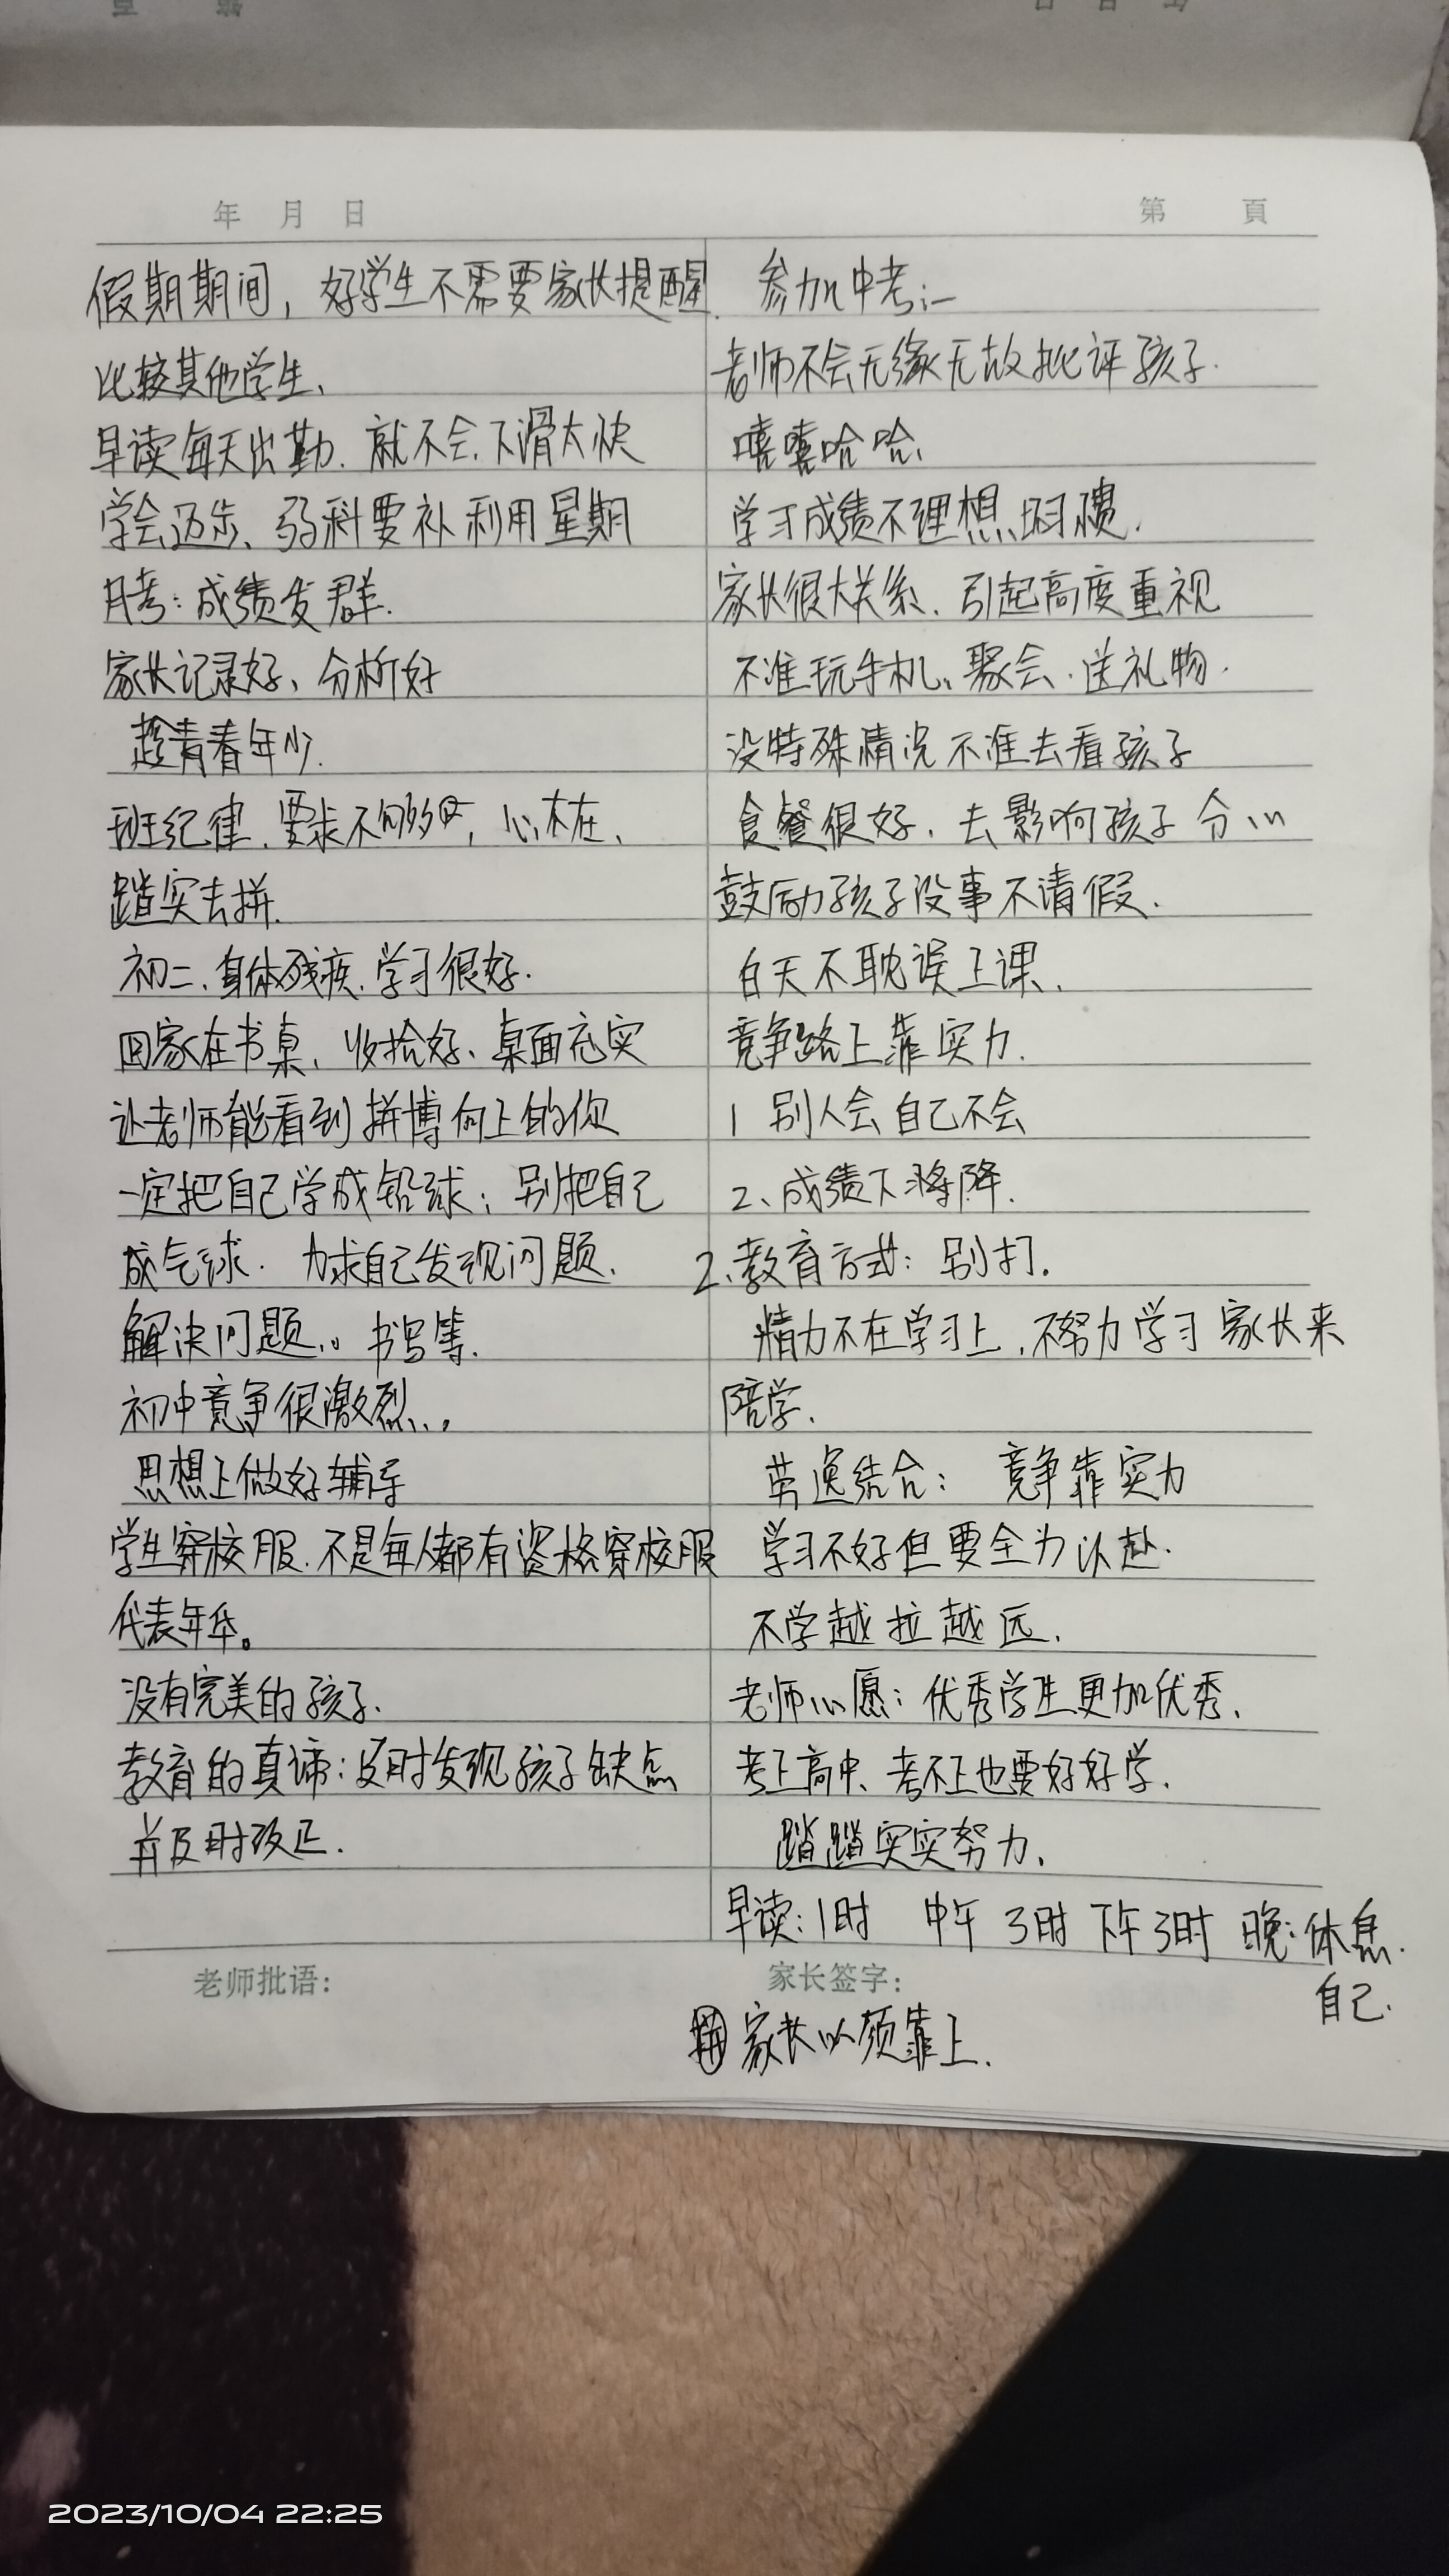 年 月 日
第 頁
假期期间，好学生不需要家长提醒.
比较其他学生、
早读每天出勤. 就不会.下滑太快
学会迈步、弱科要补 利用星期
月考：成绩发群.
家长记录好、分析好
趁青春年少.
班纪律.要求不够严，心不在、
踏实去拼.
初二、身体残疾.学习很好.
回家在书桌、收拾好、桌面充实
让老师能看到拼博向上的你
一定把自己学成铅球；别把自己
成气球. 力求自己发现问题.
解决问题.。书写等.
初中竞争很激烈...
思想上做好辅导
学生穿校服.不是每人都有资格穿校服
代表年华。
没有完美的孩子.
教育的真谛：及时发现孩子缺点
并及时改正.
参加中考：
老师不会无缘无故批评孩子.
嘻嘻哈哈、
学习成绩不理想、坏习惯.
家长很大关系. 引起高度重视
不准玩手机、聚会.送礼物.
没特殊情况不准去看孩子
食餐很好. 去影响孩子 分心
鼓励孩子没事不请假.
白天不耽误上课.
竞争路上靠实力.
1 别人会 自己不会
2、成绩下降.
2、教育方式：别打.
精力不在学习上.不努力学习 家长来
陪学.
劳逸结合： 竞争靠实力
学习不好但要全力以赴.
不学越拉越远.
老师心愿：优秀学生更加优秀、
考上高中、考不上也要好好学.
踏踏实实努力.
早读：1时 中午 3时 下午3时 晚：休息.
自己.
老师批语：
家长签字：
家长必须靠上.
2023/10/04 22:25